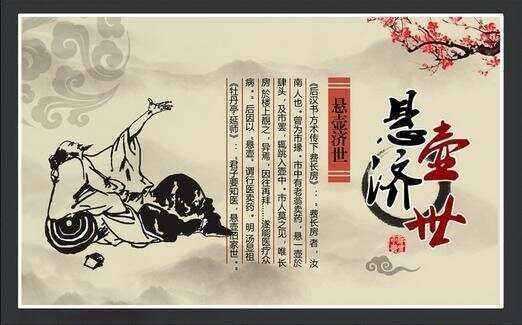 悬壶
济世
悬壶济世
《后汉书·方术传下·费长房》：“费长房者，汝
南人也。曾为市掾。市中有老翁卖药，悬一壶於
肆头，及市罢，辄跳入壶中。市人莫之见，唯长
房於楼上覩之，异焉，因往再拜……遂能医疗众
病。”后因以“悬壶”谓行医卖药。明 汤显祖
《牡丹亭·延师》：“君子要知医，悬壶旧家世。”